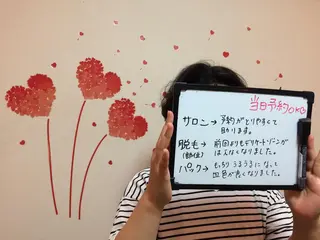 当日予約OK◎
サロン→予約がとりやすくて
助かります。
脱毛→前回よりもデリケートゾーンが
(部位)はえなくなりました。
パック→もっちりうるうるになって
血色が良くなりました。